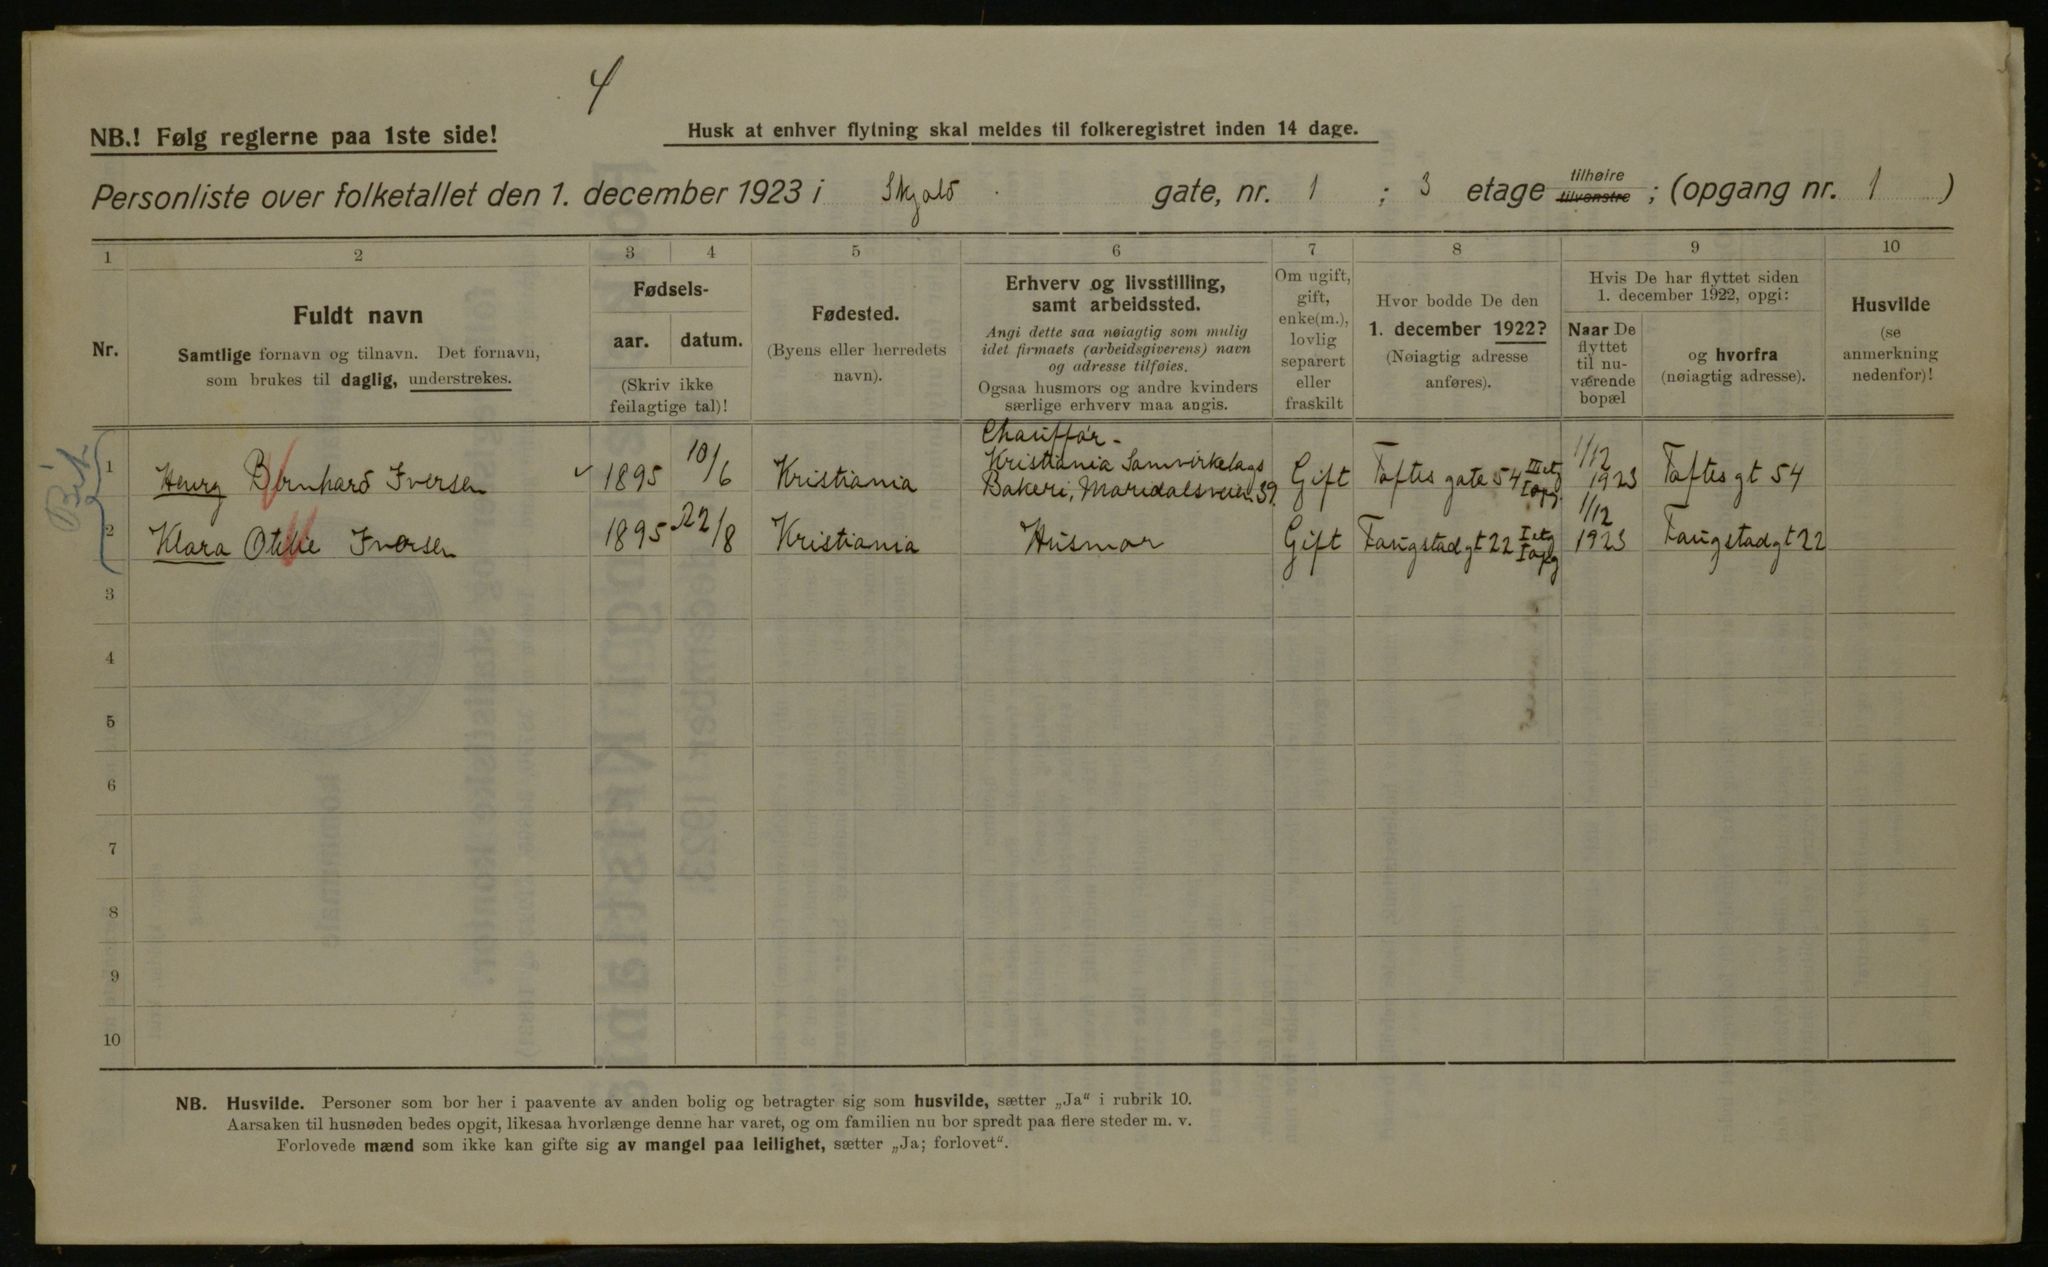 4
NB.! Følg reglerne paa 1ste side!
Husk at enhver flytning skal meldes til folkeregistret inden 14 dage.
Personliste over folketallet den 1. december 1923 i Skjald gate, nr. 1 ; 3 etage tilhøire tilvenstre ; (opgang nr. 1 )
1 2 3 4 5 6 7 8 9 10
Nr.
Fuldt navn
Samtlige fornavn og tilnavn. Det fornavn,
som brukes til daglig, understrekes.
Fødsels-
aar. datum.
(Skriv ikke
feilagtige tal)!
Fødested.
(Byens eller herredets
navn).
Erhverv og livsstilling,
samt arbeidssted.
Angi dette saa nøiagtig som mulig
idet firmaets (arbeidsgiverens) navn
og adresse tilføies.
Ogsaa husmors og andre kvinders
særlige erhverv maa angis.
Om ugift,
gift,
enke(m.),
lovlig
separert
eller
fraskilt
Hvor bodde De den
1. december 1922?
(Nøiagtig adresse
anføres).
Hvis De har flyttet siden
1. december 1922, opgi:
Naar De
flyttet
til nu-
værende
bopæl
og hvorfra
(nøiagtig adresse).
Husvilde
(se
anmerkning
nedenfor)!
1 Henry Bernhard Iversen 1895 10/6 Kristiania Chauffør - Kristiania Samvirkelags Bakeri, Maridalsveien 39. Gift Toftes gate 54 III etg I opg. 1/12 1923 Toftes gt 54
2 Klara Otilie Iversen 1895 22/8 Kristiania Husmor Gift Fougstadgt 22 I etg I opg 1/12 1923 Fougstadgt 22
3
4
5
6
7
8
9
10
NB. Husvilde. Personer som bor her i paavente av anden bolig og betragter sig som husvilde, sætter „Ja“ i rubrik 10.
Aarsaken til husnøden bedes opgit, likesaa hvorlænge denne har varet, og om familien nu bor spredt paa flere steder m. v.
Forlovede mænd som ikke kan gifte sig av mangel paa leilighet, sætter „Ja; forlovet“.